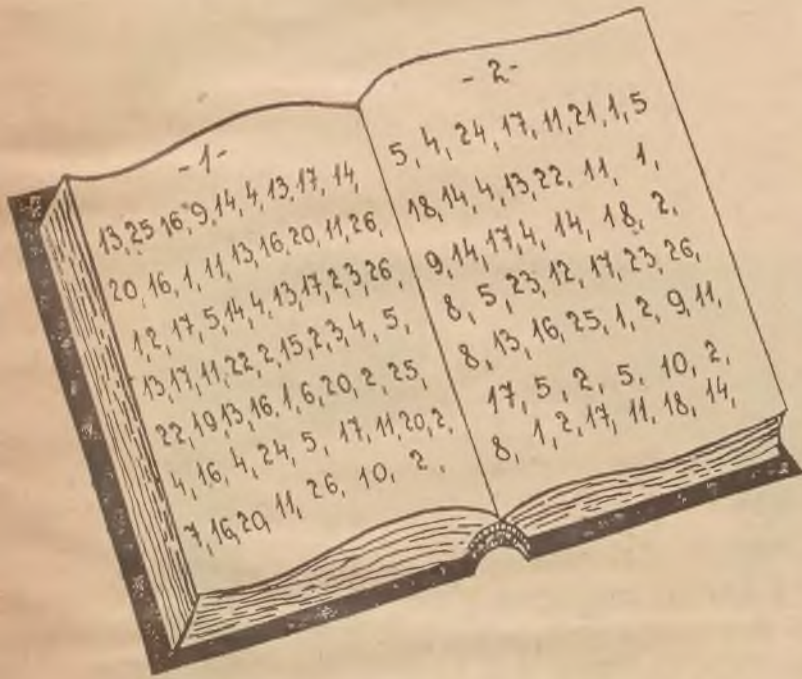 -1-
13,25 16,9,14,4,13,17,14,
20,16,1,11,13,16,20,11,26,
1,2,17,5,14,4,13,17,2,3,26,
13,17,11,22,2,15,2,3,4,5,
22,19,13,16,1,6,20,2,25,
4,16,4,24,5,17,11,20,2,
7,16,20,11,26,10,2,
-2-
5,4,24,17,11,21,1,5
18,14,4,13,22,11,1,
9,14,17,4,14,18,2,
8,5,23,12,17,23,26,
8,13,16,25,1,2,9,11,
17,5,2,5,10,2,
8,1,2,17,11,18,14,